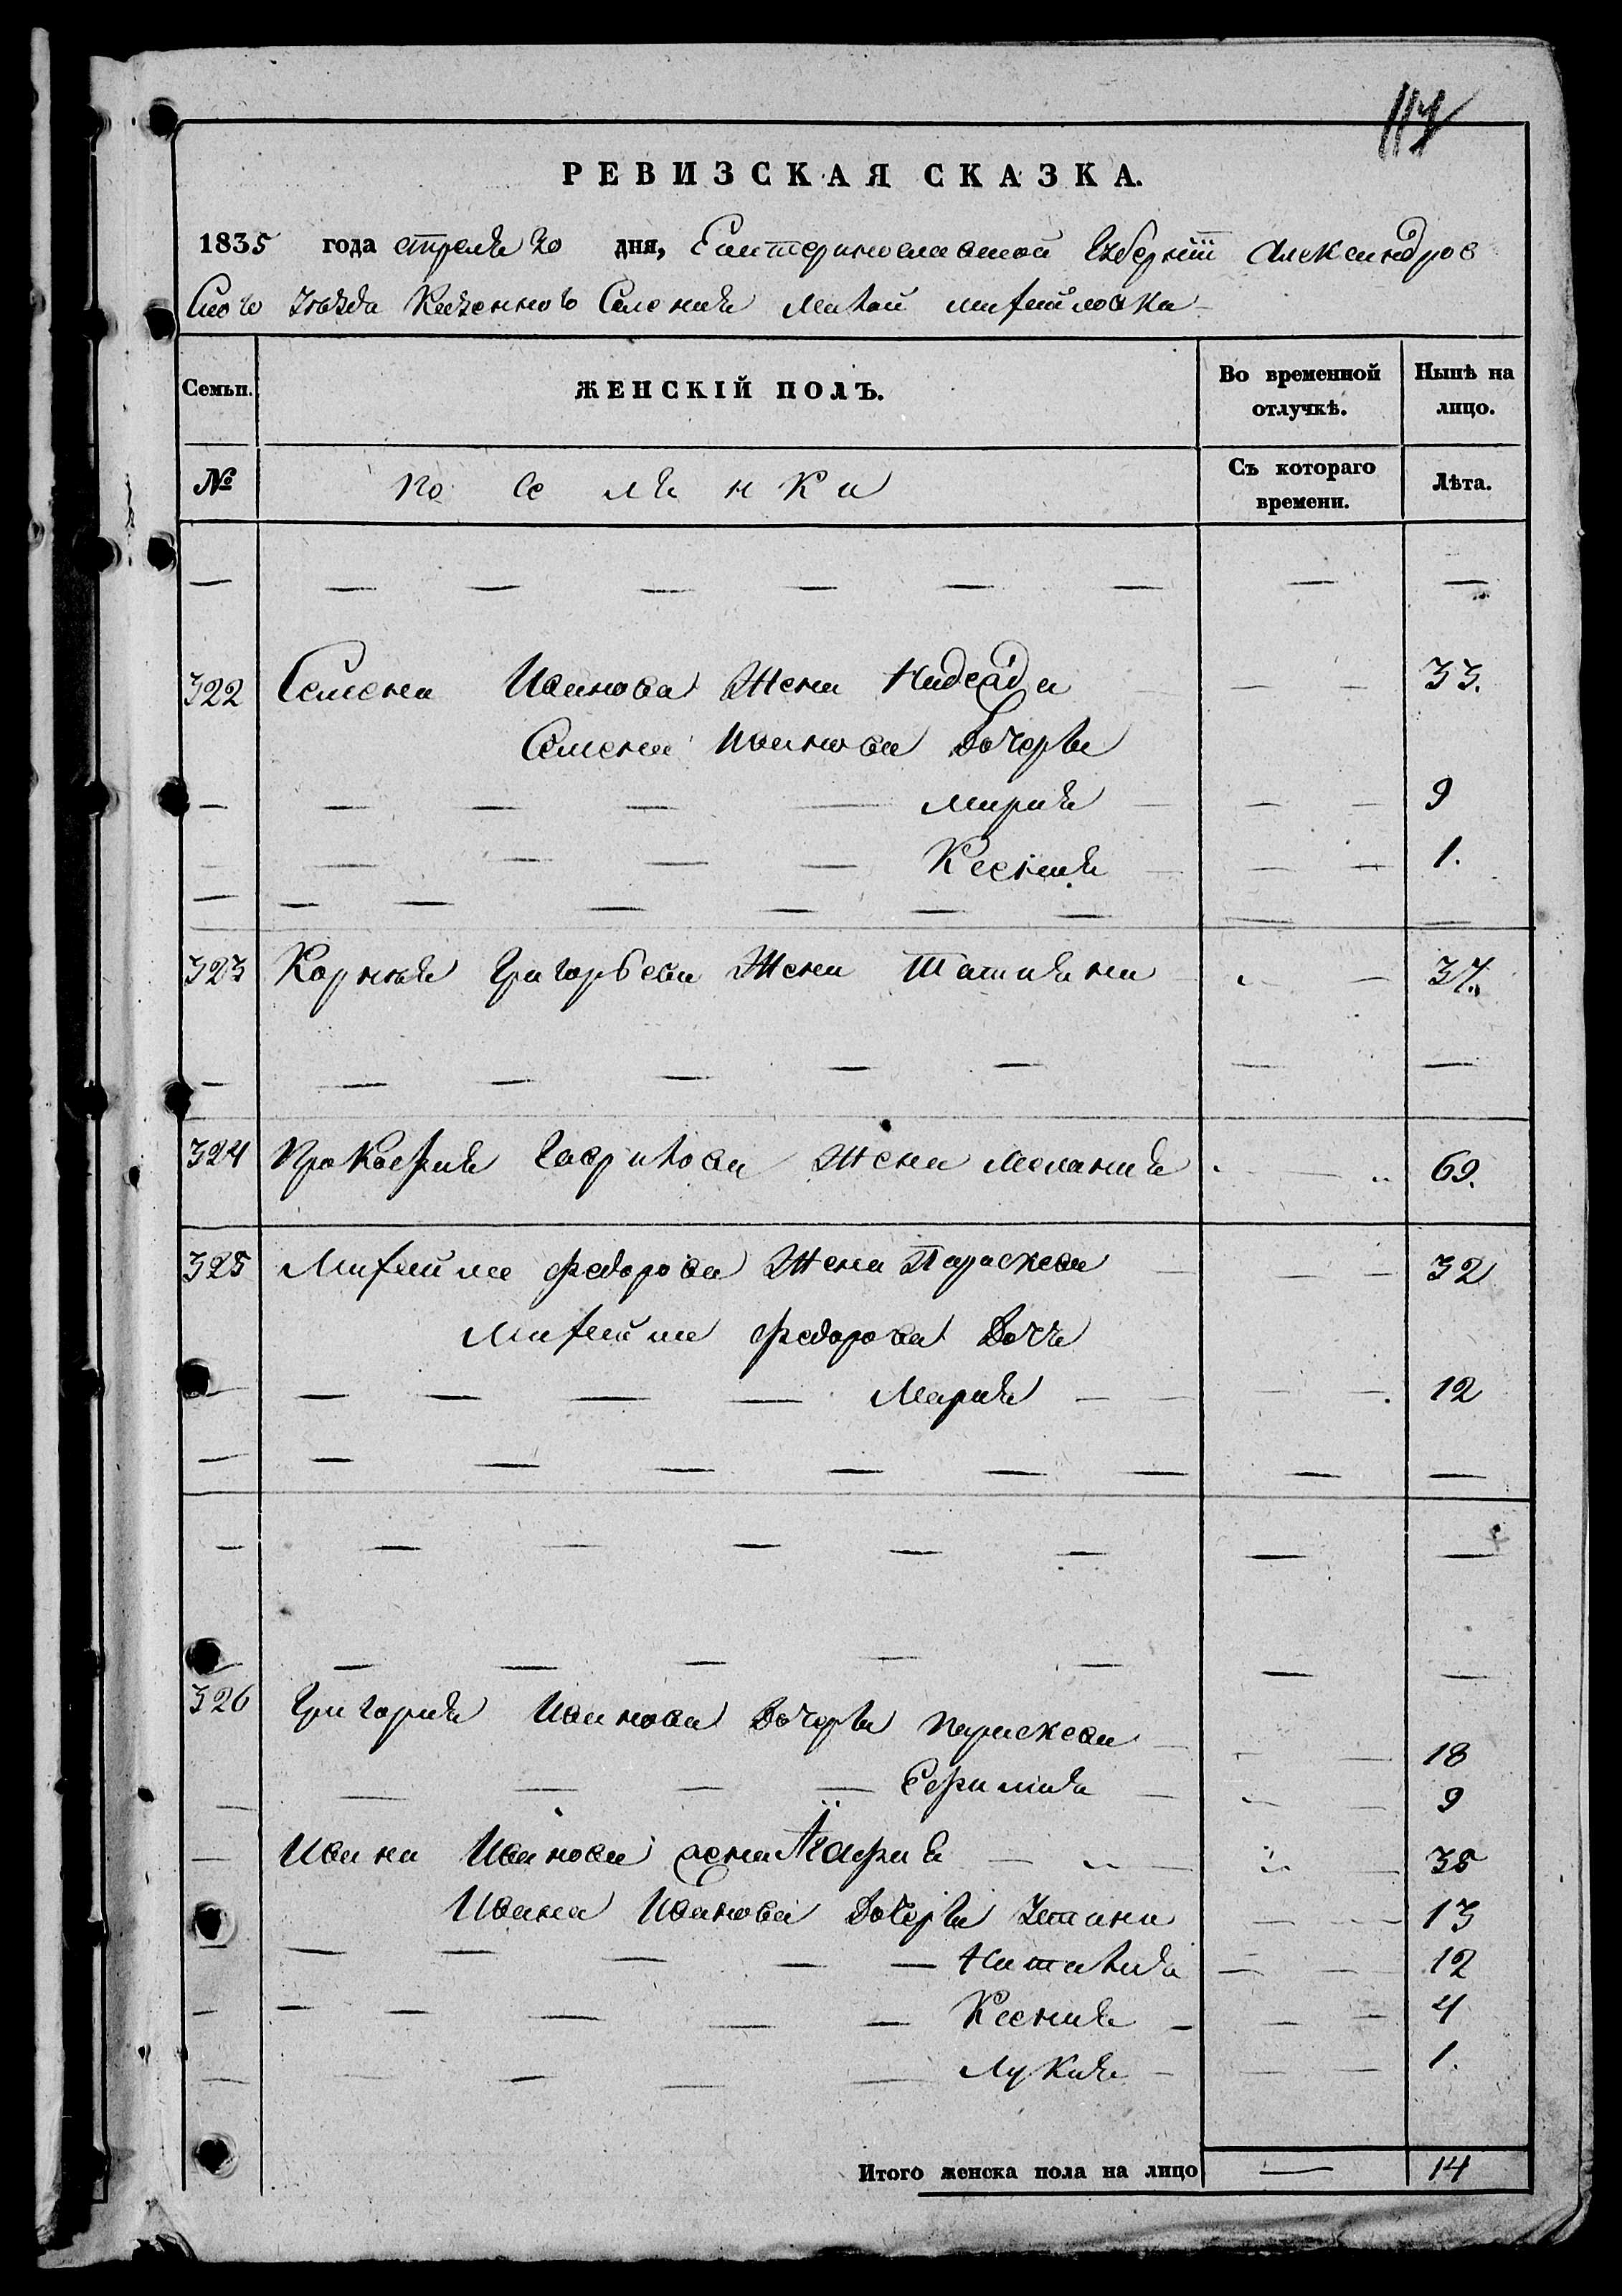 117
РЕВИЗСКАЯ СКАЗКА.
1835 года апреля 20 дня, Екатеринославской Губернiи Александров
скаго Уѣзда Казенного Селения Малой михайловки
Семьи. ЖЕНСКІЙ ПОЛЪ. Во временной отлучкѣ. Нынѣ на лицо.
№ По се ля н ки Съ котораго времени. Лѣта.
— — — — — — — — —
322 Семена Иванова Жена Надежда — — 33.
Семена Иванова Дочерьи
— — — — — Мария — — — 9
— — — — — Ксения — — — 1.
— — — — — — — — —
323 Корнѣя Григорьева Жена Татияна — 37.
— — — — — — — —
324 Прокофия Гаврилова Жена Мелания — 69.
325 Михайла Федорова Жена Параскева — — — 32
Михайла Федорова Дочь
— — — — — Мария — — — — 12
— — — — — — — — —
— — — — — — — —
— — — — — — — —
326 Григория Иванова Дочерьи Параскева — — — 18
— — — — — Ефимия — — — 9
— Ивана Иванова жена Агафия — — — 35
Ивана Иванова Дочерьи Устина — — 13
— — — — — — Наталия — — 12
— — — — — — Ксения — — — 4
— — — — — — Лукия — — — 1.
Итого женска пола на лицо — 14